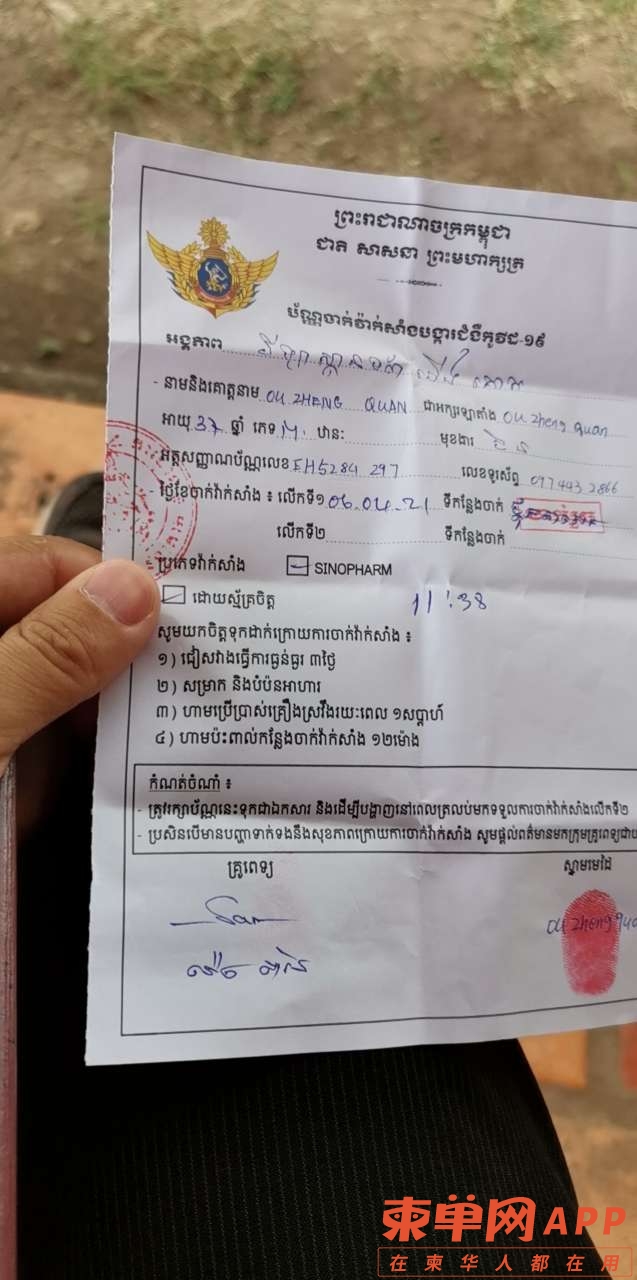 ព្រះរាជាណាចក្រកម្ពុជា
ជាតិ សាសនា ព្រះមហាក្សត្រ
ប័ណ្ណចាក់វ៉ាក់សាំងបង្ការជំងឺកូវីដ-១៩
អង្គភាព
- នាមនិងគោត្តនាម OU ZHENG QUAN ជាអក្សរឡាតាំង OU Zheng Quan
អាយុ 37 ឆ្នាំ ភេទ M ឋានៈ មុខងារ
អត្តសញ្ញាណប័ណ្ណលេខ EH5284 297 លេខទូរស័ព្ទ 097 443 2866
ថ្ងៃខែចាក់វ៉ាក់សាំង ៖ លើកទី១ 06.04.21 ទីកន្លែងចាក់
លើកទី២ ទីកន្លែងចាក់
ប្រភេទវ៉ាក់សាំង SINOPHARM
ដោយស្ម័គ្រចិត្ត 11:38
សូមយកចិត្តទុកដាក់ក្រោយការចាក់វ៉ាក់សាំង ៖
១) ជៀសវាងធ្វើការធ្ងន់ធ្ងរ ៣ថ្ងៃ
២) សម្រាក និងបំប៉នអាហារ
៣) ហាមប្រើប្រាស់គ្រឿងស្រវឹងរយៈពេល ១សប្តាហ៍
៤) ហាមប៉ះពាល់កន្លែងចាក់វ៉ាក់សាំង ១២ម៉ោង
កំណត់ចំណាំ ៖
- ត្រូវរក្សាប័ណ្ណនេះទុកជាឯកសារ និងដើម្បីបង្ហាញនៅពេលត្រលប់មកទទួលការចាក់វ៉ាក់សាំងលើកទី២
- ប្រសិនបើមានបញ្ហាទាក់ទងនឹងសុខភាពក្រោយការចាក់វ៉ាក់សាំង សូមផ្តល់ព័ត៌មានមកក្រុមគ្រូពេទ្យជា
គ្រូពេទ្យ ស្នាមមេដៃ
OU Zheng Qua
柬单网APP
在柬华人都在用